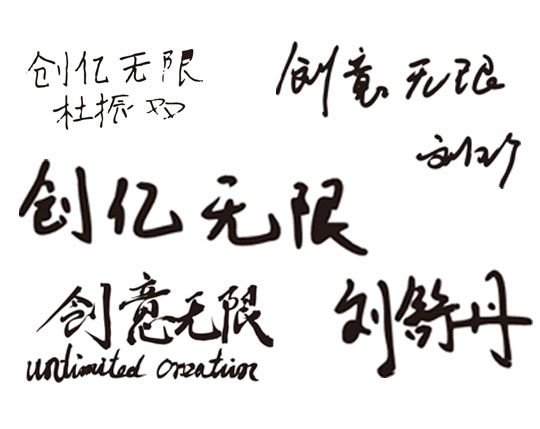 创亿无限
杜振双
创意无限
创亿无限
创意无限
unlimited creation